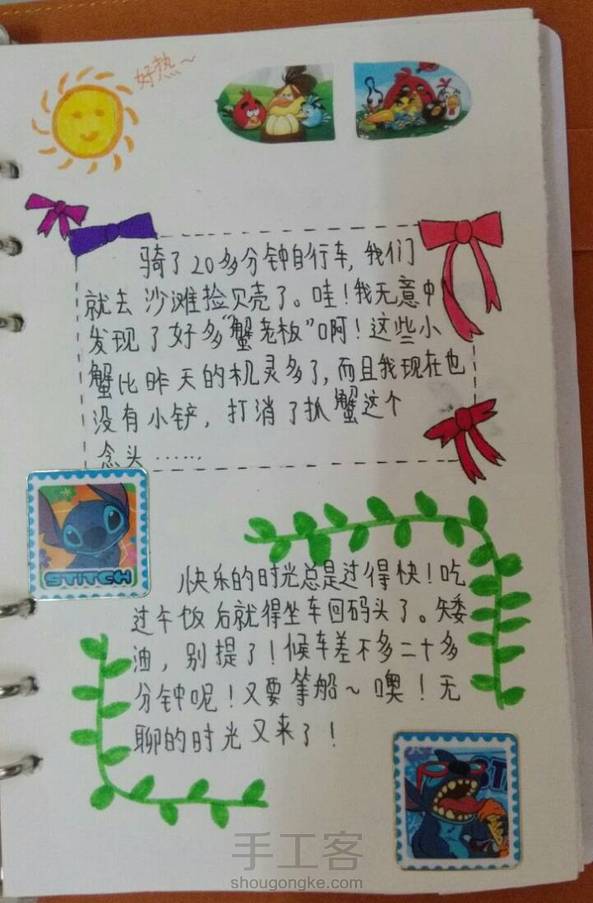 好热~
骑了20多分钟自行车,我们
就去沙滩捡贝壳了。哇!我无意中
发现了好多“蟹老板”啊!这些小
蟹比昨天的机灵多了,而且我现在也
没有小铲,打消了抓蟹这个
念头……
STITCH
快乐的时光总是过得快!吃
过午饭后就得坐车回码头了。矮
油,别提了!候车差不多二十多
分钟呢!又要等船~噢!无
聊的时光又来了!
手工客
shougongke.com